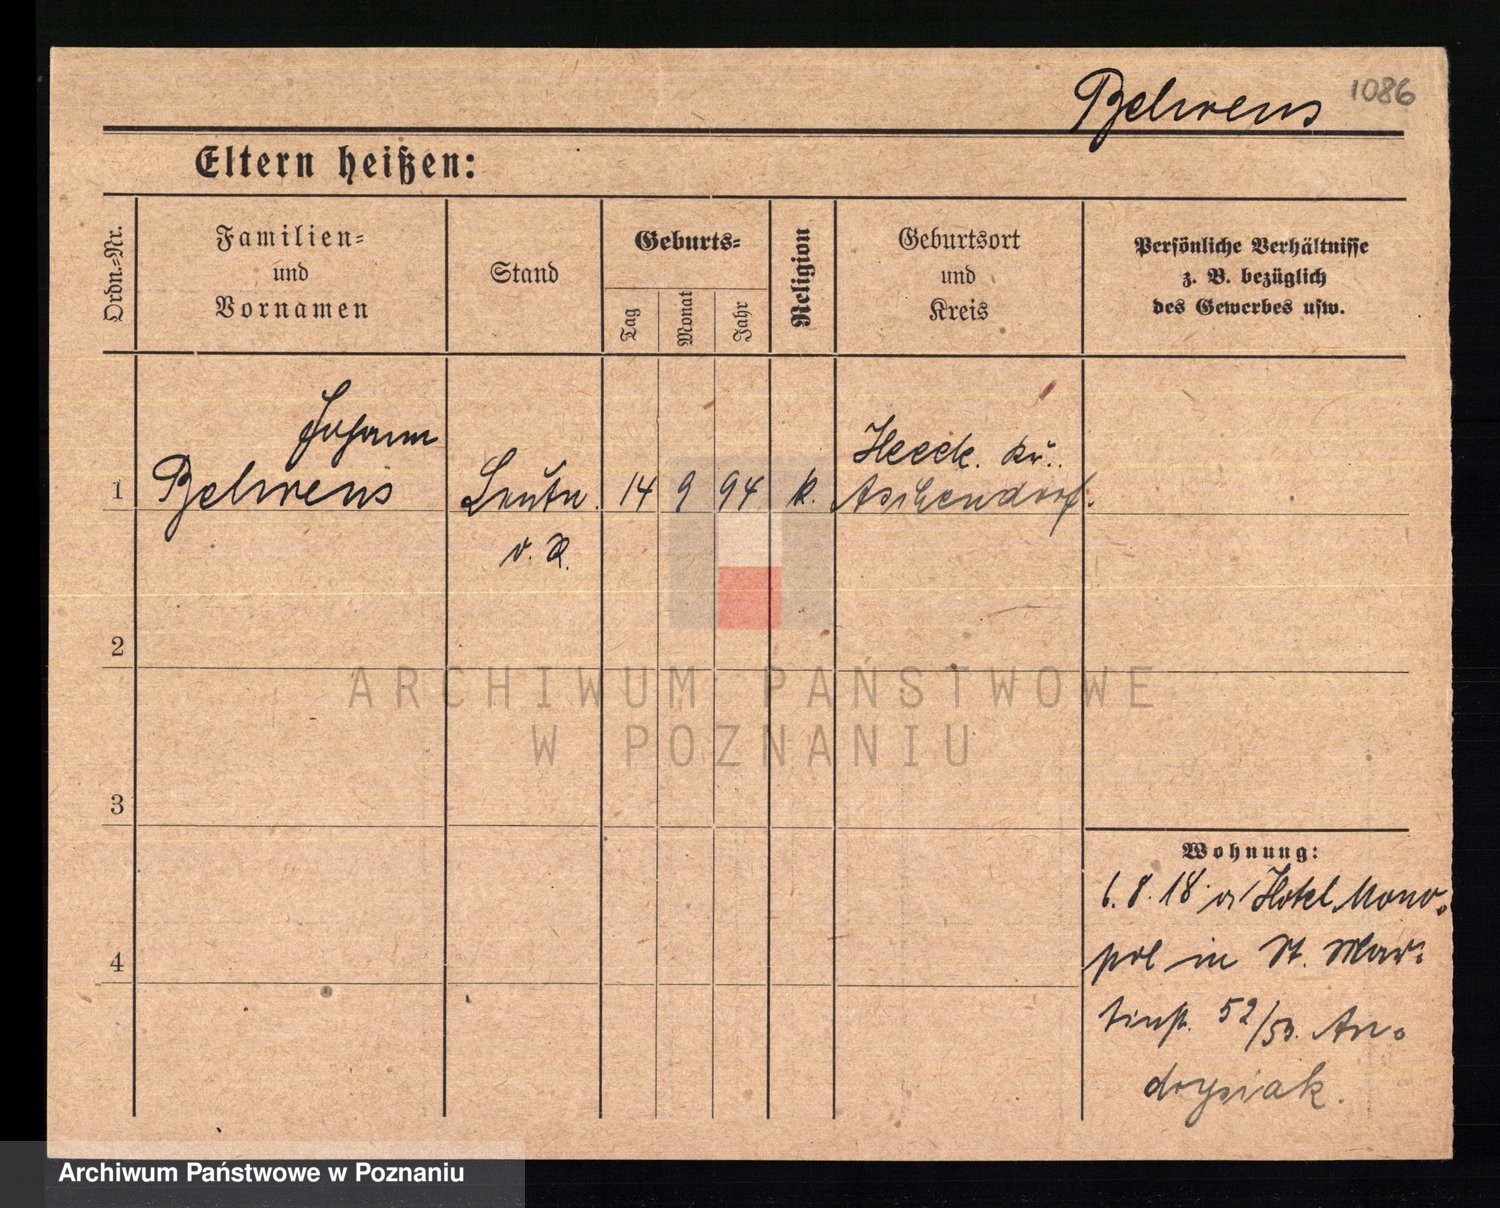 Behrens 1086
Eltern heißen:
Ordn.-Nr.
Familien-
und
Vornamen
Stand
Geburts-
Tag
Monat
Jahr
Religion
Geburtsort
und
Kreis
Persönliche Verhältnisse
z. B. bezüglich
des Gewerbes usw.
Johann
1 Behrens Leutn. 14 9 94 k. Heede. Kr.
Aschendorf.
d. R.
2
ARCHIWUM PAŃSTWOWE
W POZNANIU
3
Wohnung:
6.8.18 Hotel Mono-
pol in St. Mar-
tinstr. 52/53. An-
drysiak.
4
Archiwum Państwowe w Poznaniu